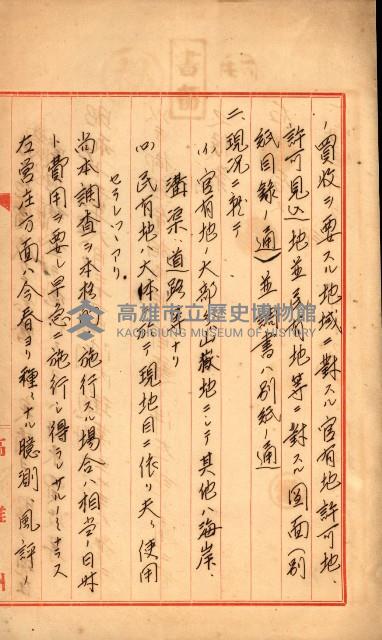 買收ヲ要スル地域ニ對スル官有地許可地、
許可見込地並民有地等ニ對スル図面(別
紙目録ノ通)並調書ハ別紙ノ通
二、現况ニ就テ
(イ)官有地ノ大部分ハ山嶽地ニシテ其他ハ海岸、
溝渠、道路ナリ
(ロ)民有地ハ大体ニ於テ現地目ニ依リ夫々使用
セラレツヽアリ
尚本調査ヲ本格的ニ施行スル場合ハ相当ノ日时
ト費用ヲ要シ早急ニ施行シ得ラレサルノミナラス
左営庄方面ハ今春ヨリ種々ナル臆測、風評ノ
高雄州
高雄市立歷史博物館
KAOHSIUNG MUSEUM OF HISTORY